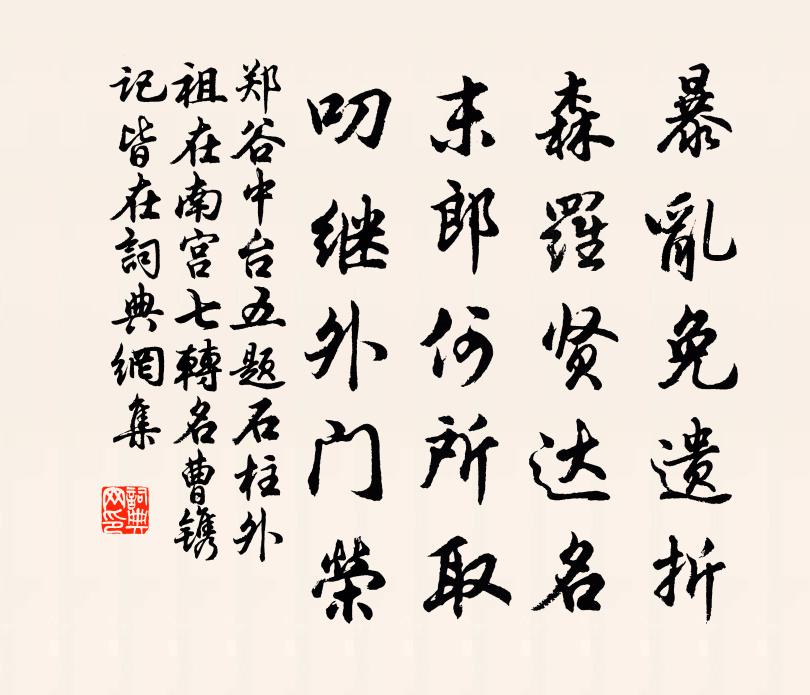 暴亂免遗折
森羅贤达名
末郎何所取
叨继外门榮
郑谷中台五题石柱外
祖在南宫七轉名曹镌
记皆在詞典網集
詞典网印